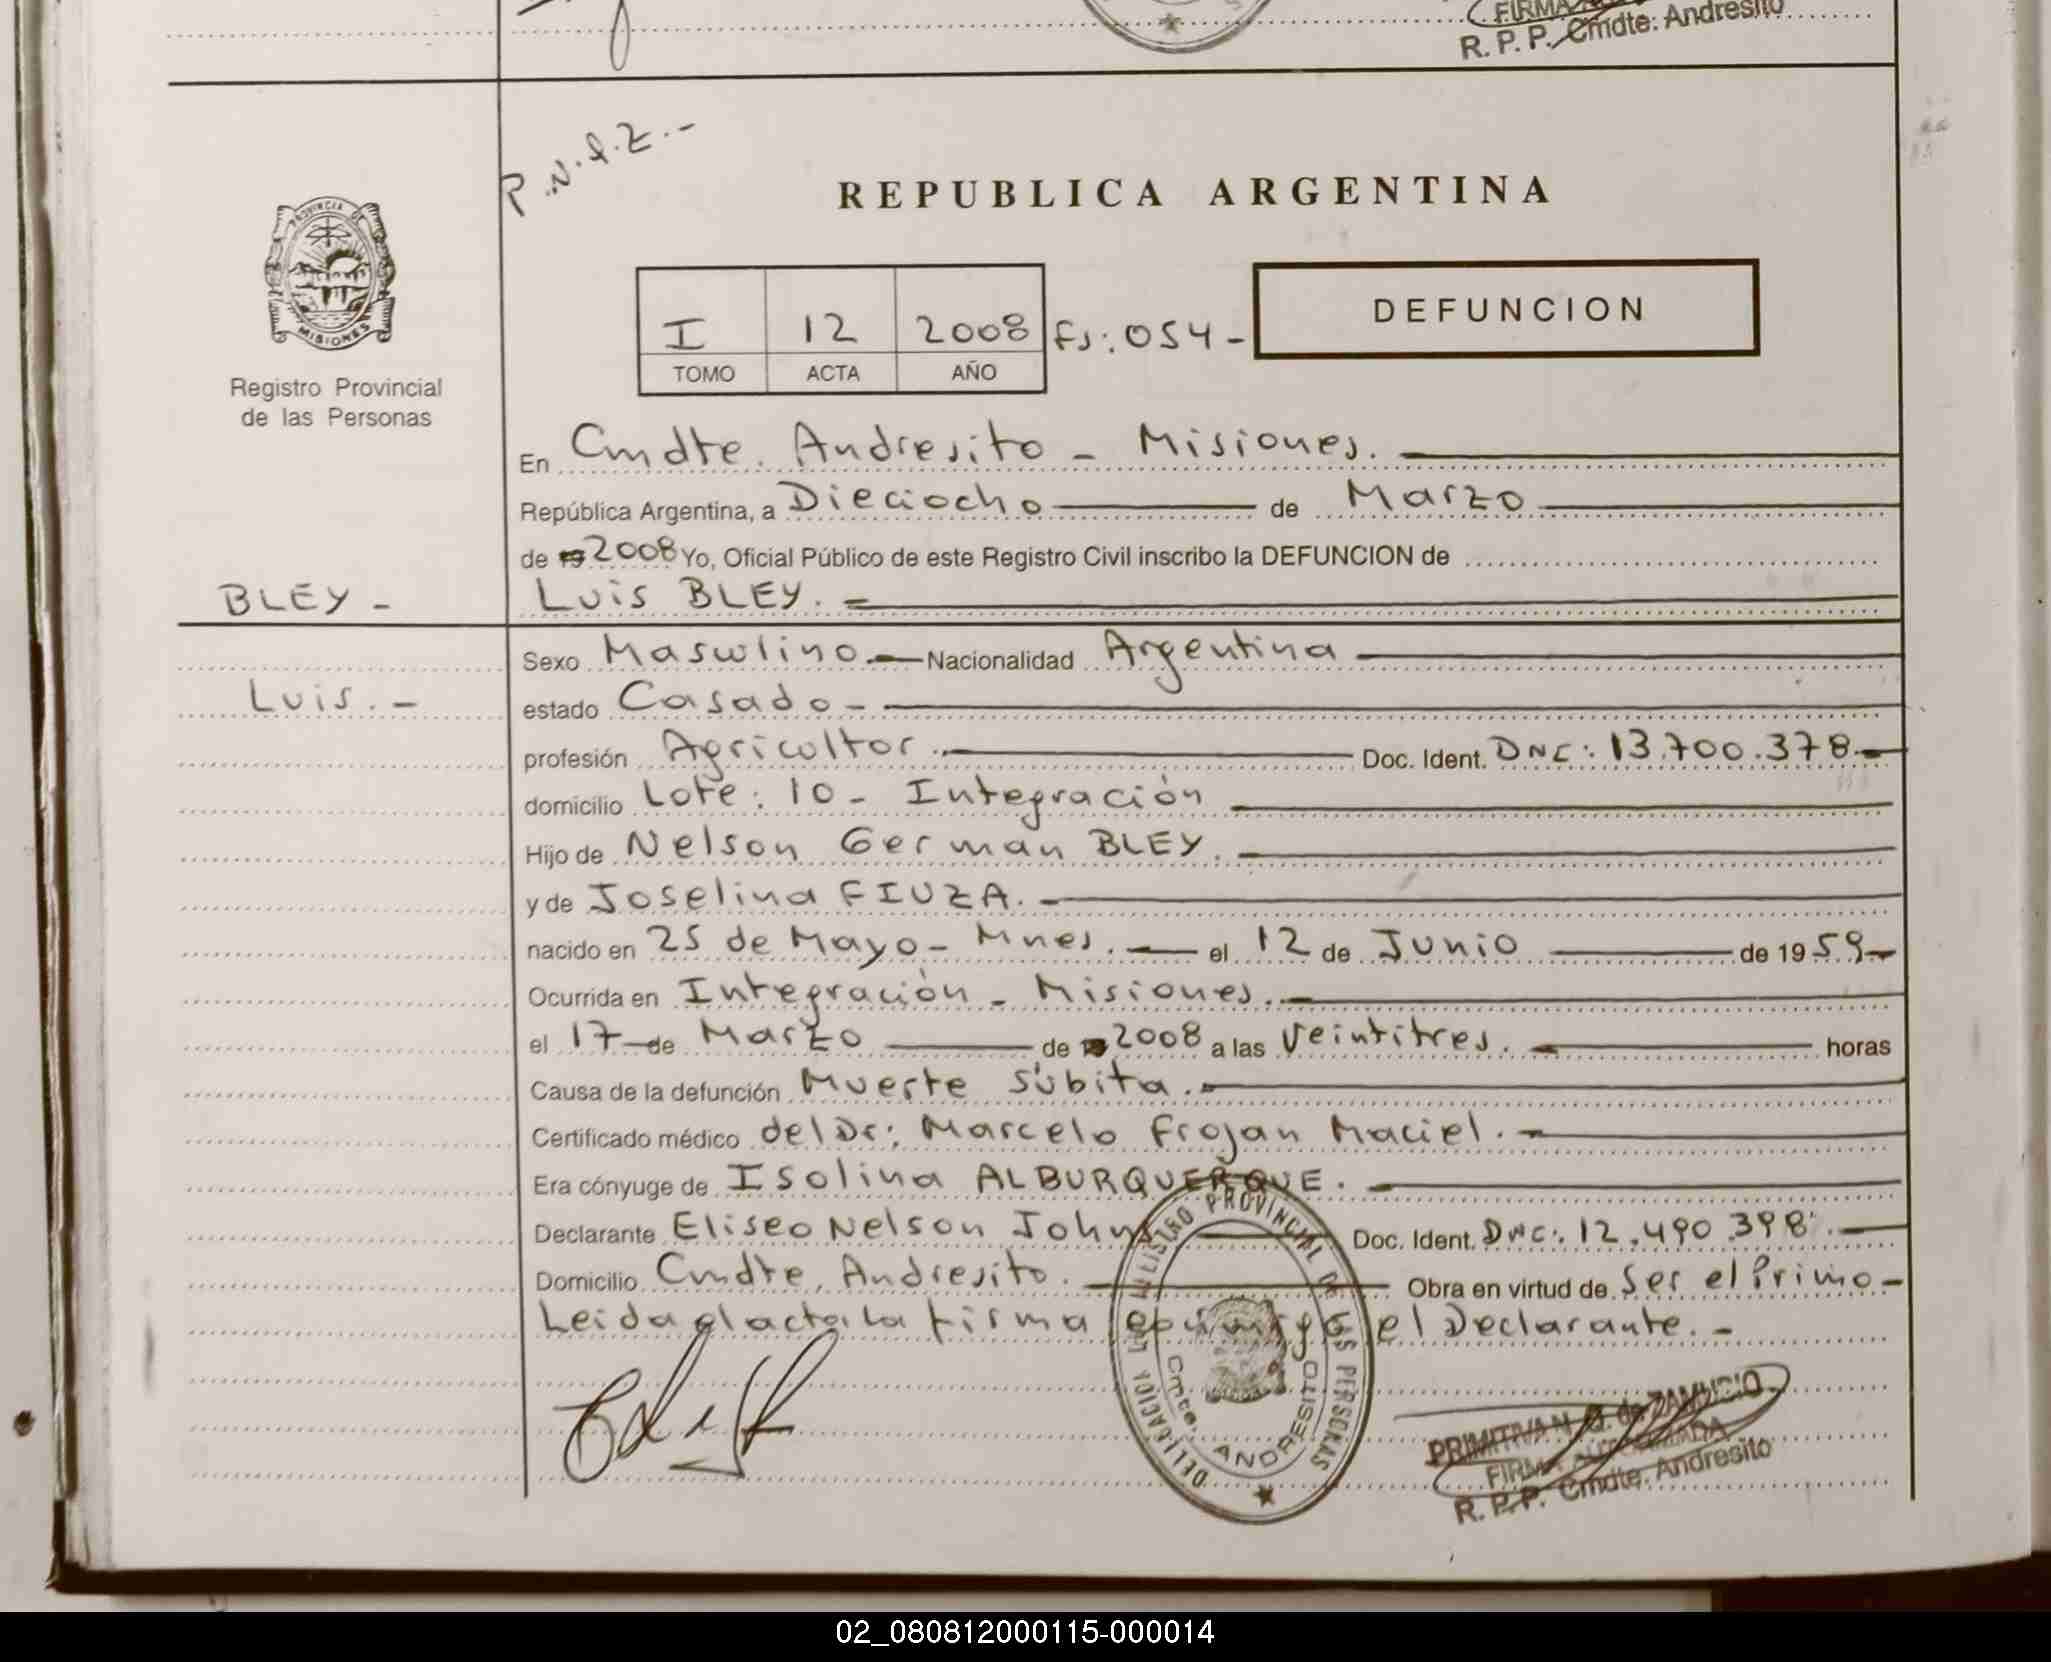 FIRMA
R. P. P. Cmdte. Andresito
P.N.I.Z.-
PROVINCIA DE
MISIONES
Registro Provincial
de las Personas
REPUBLICA ARGENTINA
I 12 2008 Fs: 054-
TOMO ACTA AÑO
DEFUNCION
En Cmdte. Andresito - Misiones.
República Argentina, a Dieciocho de Marzo
de 19 2008 Yo, Oficial Público de este Registro Civil inscribo la DEFUNCION de
BLEY - Luis BLEY.
Sexo Masculino. Nacionalidad Argentina
Luis. - estado Casado -
profesión Agricultor. Doc. Ident. DNC: 13.700.378-
domicilio Lote: 10 - Integración
Hijo de Nelson German BLEY.
y de Joselina FIUZA.
nacido en 25 de Mayo - Mnes. el 12 de Junio de 1959-
Ocurrida en Integración - Misiones.
el 17 de Marzo de 19 2008 a las Veintitres. horas
Causa de la defunción Muerte Súbita.
Certificado médico del Dr: Marcelo Frojan Maciel.
Era cónyuge de Isolina ALBURQUERQUE.
Declarante Eliseo Nelson John Doc. Ident. DNC: 12.490.398.
Domicilio Cmdte. Andresito. Obra en virtud de Ser el Primo-
Leida el acta la firma conmigo el Declarante. -
DELEGACION REGISTRO PROVINCIAL DE LAS PERSONAS
Cmte. ANDRESITO
PRIMITIVA N. G. de ZAMUDIO
FIRMA AUTORIZADA
R. P. P. Cmdte. Andresito
02_080812000115-000014